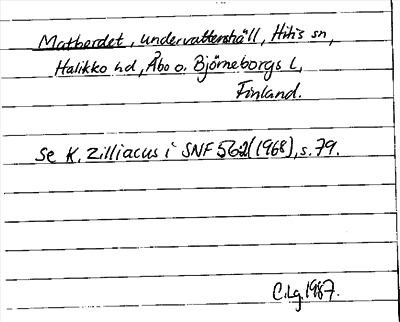 Matbordet, undervattenshäll, Hitis sn,
Halikko hd, Åbo o. Björneborgs l,
Finland.
Se K. Zilliacus i SNF 562 (1968), s. 79.
C.Lg. 1987.